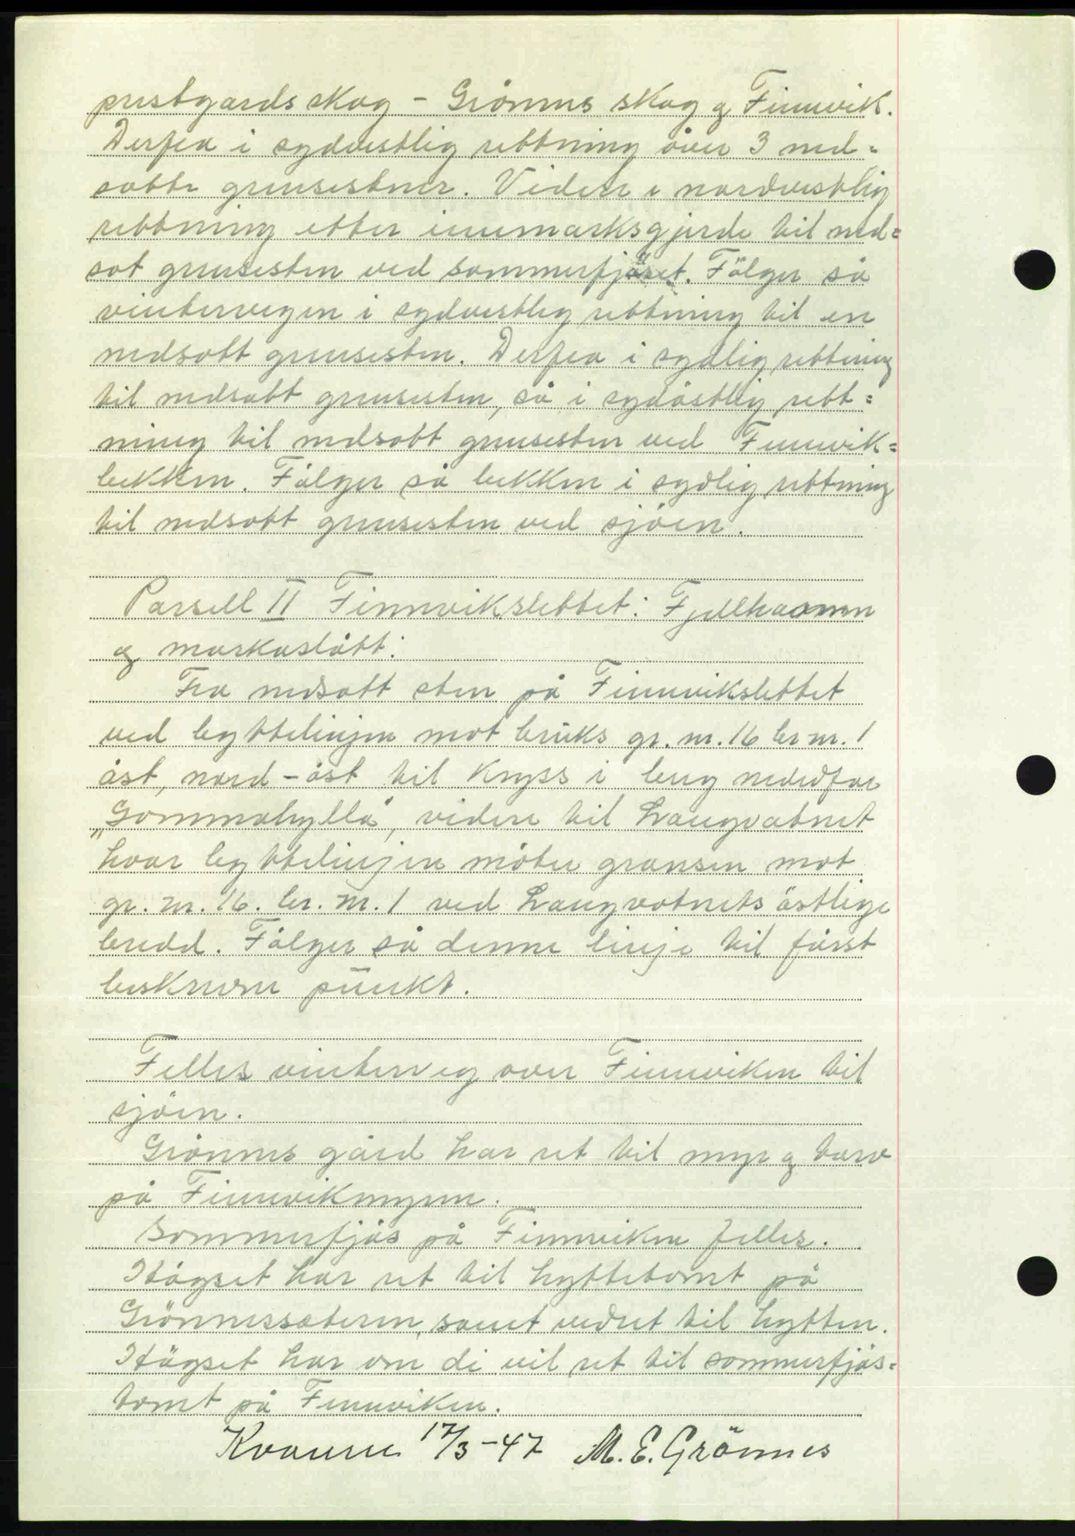 prestgardsskog - Grönnes skog og Finnvik.
Derfra i sydvestlig rettning över 3 ned-
satte grensestener. Videre i nordvestlig
rettning etter innmarksgjerde til ned=
sat grensesten ved sommerfjöset. Fölger så
vintervegen i sydvestleg rettning til en
nedsatt grensesten. Derfra i sydlig rettning
til nedsatt grensesten, så i sydöstlig rett=
ning til nedsatt grensesten ved Finnvik=
bekken. Fölger så bekken i sydlig rettning
til nedsatt grensesten ved sjöen.
Parsell II Finnvikslettet: Fjellhamn
og markaslått:
Fra nedsatt sten på Finnvikslettet
ved byttelinjen mot bruks gr. nr. 16 br nr. 1
öst, nord-öst til kryss i berg nedfor
"Gommohylla", videre til Langvatnet
hvor byttelinjen möter grensen mot
gr. nr. 16. br. nr. 1 ved Langvatnets östlige
bredd. Fölger så denne linje til först
beskrevne punkt.
Felles vinterveg over Finnviken til
sjöen.
Grönnes gård har ret til myr og torv
på Finnvikmyren.
Sommerfjös på Finnviken felles.
Högset har ret til hyttetomt på
Grönnessæteren, samt vedret til hytten.
Högset har om di vil ret til sommerfjös=
tomt på Finnviken.
Kvanne 17/3-47 M. E. Grönnes